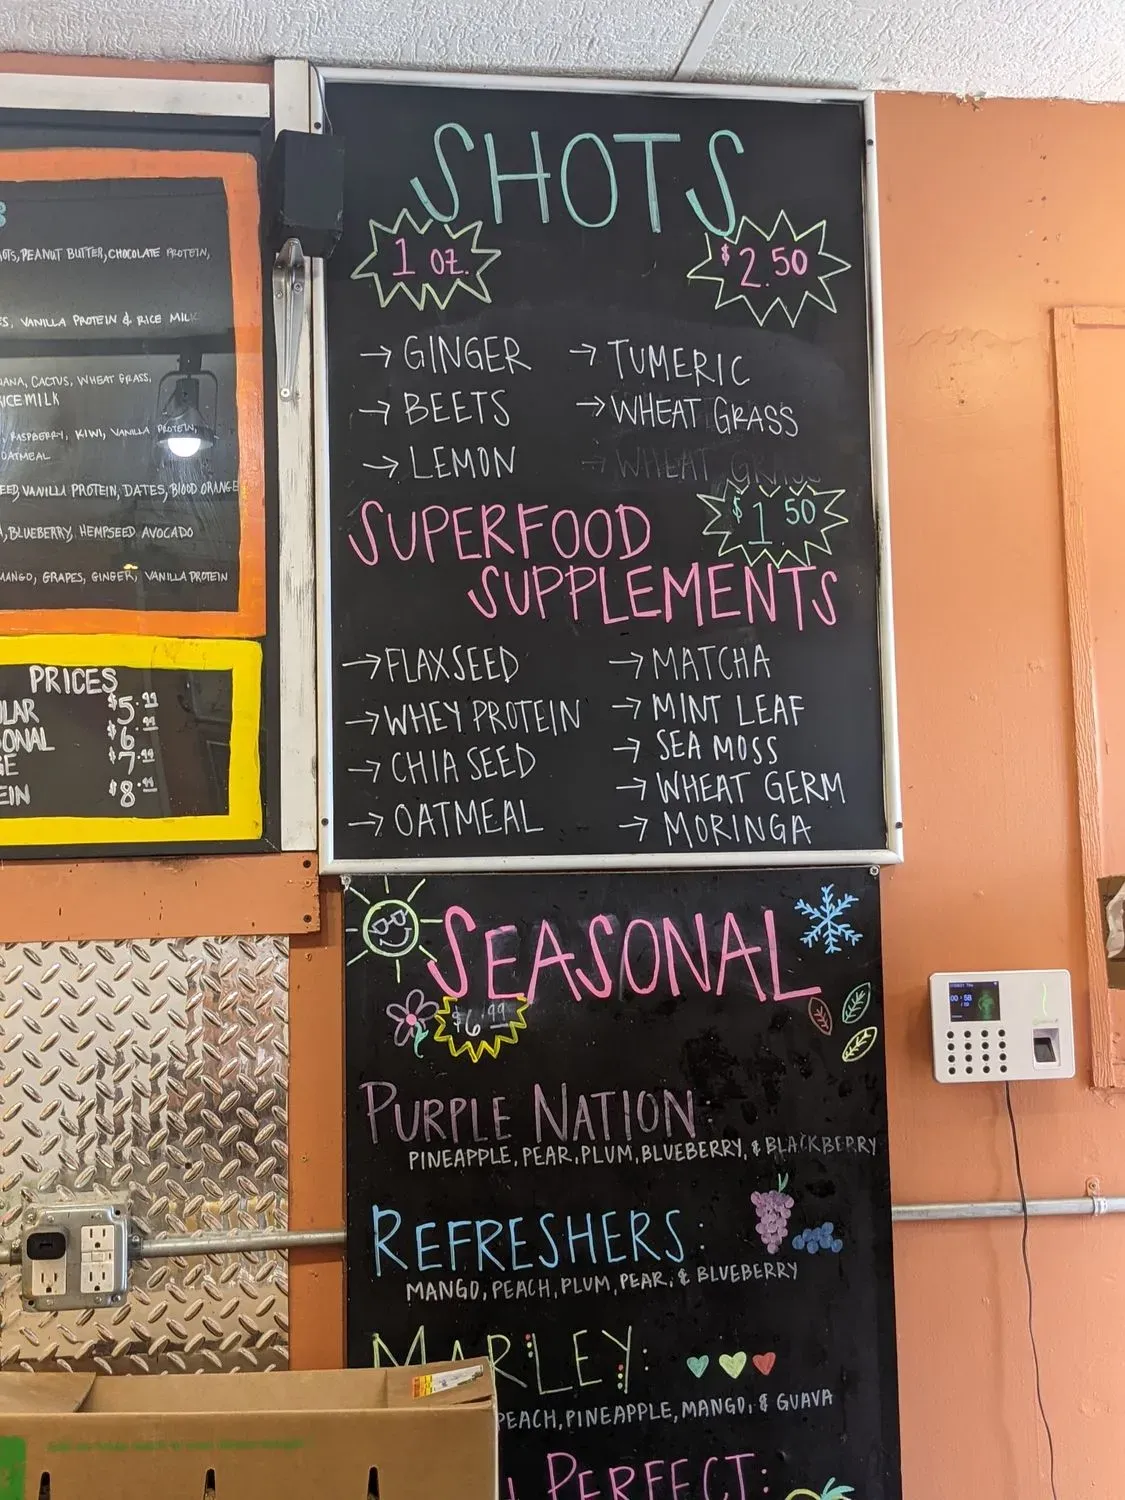 PEANUT BUTTER, CHOCOLATE PROTEIN,
VANILLA PROTEIN & RICE MILK
CACTUS, WHEAT GRASS,
MILK
RASPBERRY, KIWI, VANILLA PROTEIN,
OATMEAL
VANILLA PROTEIN, DATES, BLOOD ORANGE
BLUEBERRY, HEMPSEED AVOCADO
MANGO, GRAPES, GINGER, VANILLA PROTEIN
PRICES
$5.99
$6.99
$7.99
$8.99
SHOTS
1 OZ.
$2.50
→ GINGER
→ BEETS
→ LEMON
→ TUMERIC
→ WHEAT GRASS
→ WHEAT GRASS
SUPERFOOD
SUPPLEMENTS
$1.50
→ FLAXSEED
→ WHEY PROTEIN
→ CHIA SEED
→ OATMEAL
→ MATCHA
→ MINT LEAF
→ SEA MOSS
→ WHEAT GERM
→ MORINGA
SEASONAL
$6.99
PURPLE NATION:
PINEAPPLE, PEAR, PLUM, BLUEBERRY, & BLACKBERRY
REFRESHERS:
MANGO, PEACH, PLUM, PEAR, & BLUEBERRY
MARLEY:
PEACH, PINEAPPLE, MANGO, & GUAVA
PERFECT: